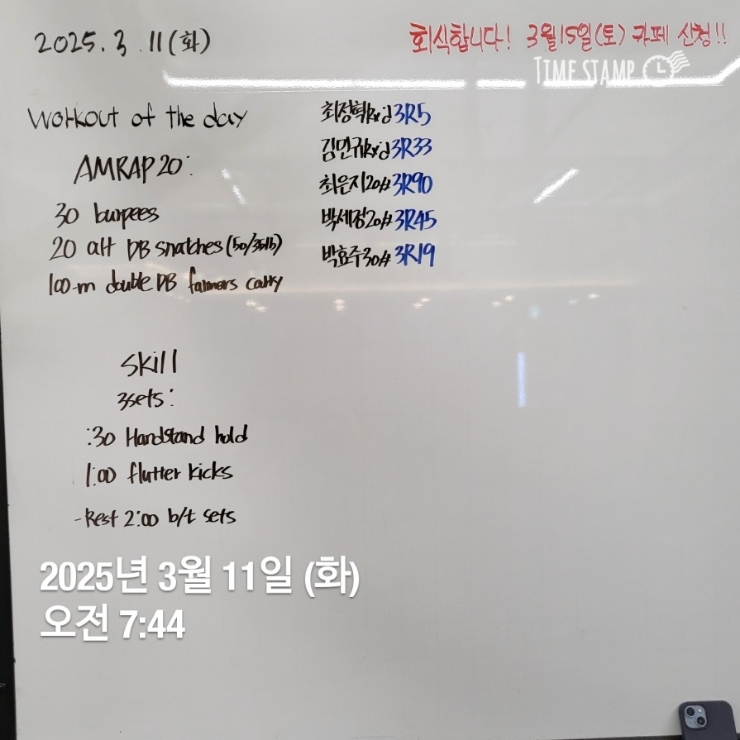 2025. 3. 11 (화)
회식합니다! 3월15일(토) 카페 신청!!
TIME STAMP
Workout of the day
AMRAP 20:
30 burpees
20 alt DB snatches (50/35lb)
100-m double DB farmers carry
최장혁Rx'd 3R5
김민규Rx'd 3R33
최은지20# 3R90
박세정20# 3R45
박효주30# 3R19
Skill
3sets:
:30 Handstand hold
1:00 flutter kicks
-Rest 2:00 b/t sets
2025년 3월 11일 (화)
오전 7:44